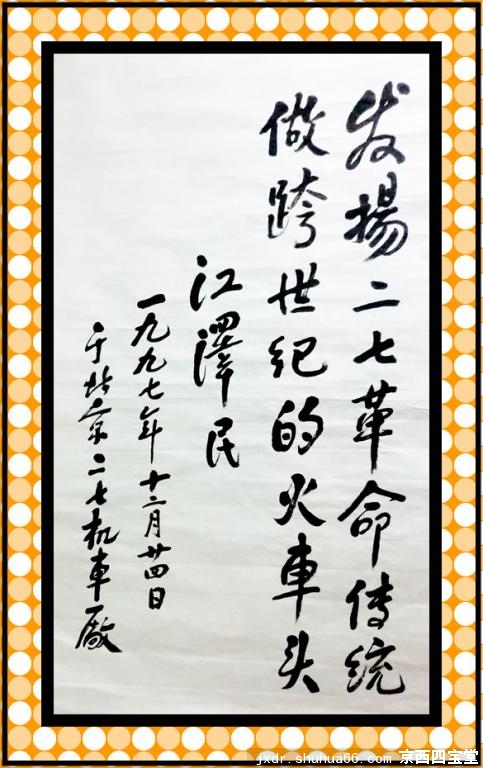 发揚二七革命传统
做跨世纪的火車头
江澤民
一九九七年十二月廿四日
于北京二七机車厰
jxdr.shuhua66.com 京西四宝堂